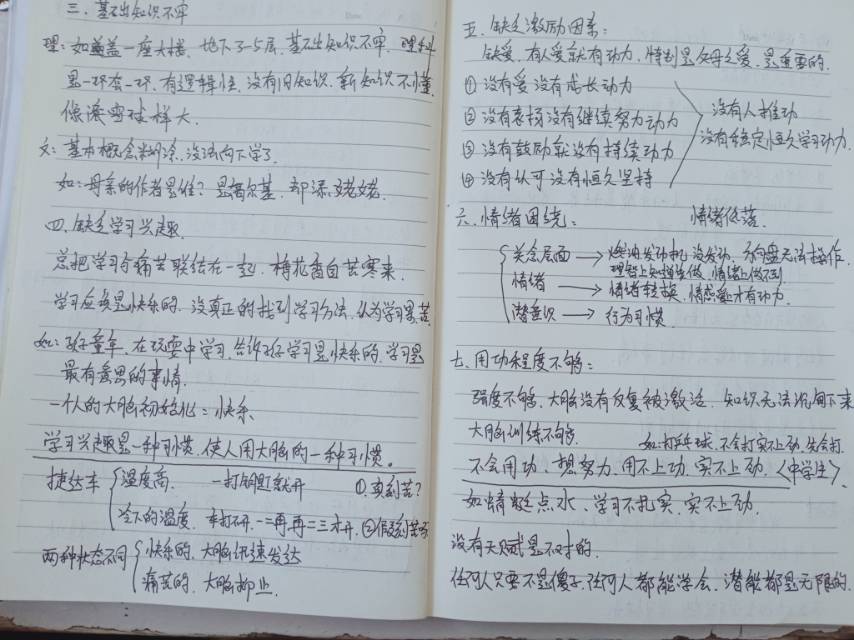 三、基础知识不牢
理：如盖一座大楼，地下了3-5层，基础知识不牢，理科
是一环套一环，有逻辑性，没有旧知识，新知识不懂，
像滚雪球样大。
文：基本概念糊涂，没法向下学了。
如：母亲的作者是谁？是高尔基，却添姥姥。
四、缺乏学习兴趣
总把学习与痛苦联结在一起，梅花香自苦寒来。
学习应该是快乐的，没真正的找到学习方法，认为学习累、苦
如：孩子童年，在玩耍中学习，告诉孩子学习是快乐的，学习是
最有意思的事情。
一个人的大脑初始化：快乐
学习兴趣是一种习惯，使人用大脑的一种习惯。
捷达车
温度高，一打钥匙就开 ①真刻苦？
冷下的温度，车打不开，一二再，再二三才开，②假刻苦
两种状态不同
快乐的，大脑迅速发达
痛苦的，大脑抑止。
五、缺乏激励因素：
缺爱，有人爱就有动力，特别是父母之爱，是重要的。
①没有爱没有成长动力
②没有表扬没有继续努力动力
③没有鼓励就没有持续动力
④没有认可没有恒久坚持
没有人推动
没有稳定恒久学习动力。
六、情绪困绕： 情绪低落。
意念层面→燃油发动机没发动，方向盘无法操作。
理智上知道该做，情绪上做不到
情绪→情绪转换，情感爱才有动力。
潜意识→行为习惯。
七、用功程度不够：
强度不够，大脑没有反复被激活，知识无法沉淀下来
大脑训练不够 如：打乒乓球，不会打实不上劲，先会打
不会用功、想努力，用不上功，实不上劲，〈中学生〉
如蜻蜓点水、学习不扎实，实不上劲。
没有天赋是不对的。
任何人只要不是傻子，任何人都能学会，潜能都是无限的。